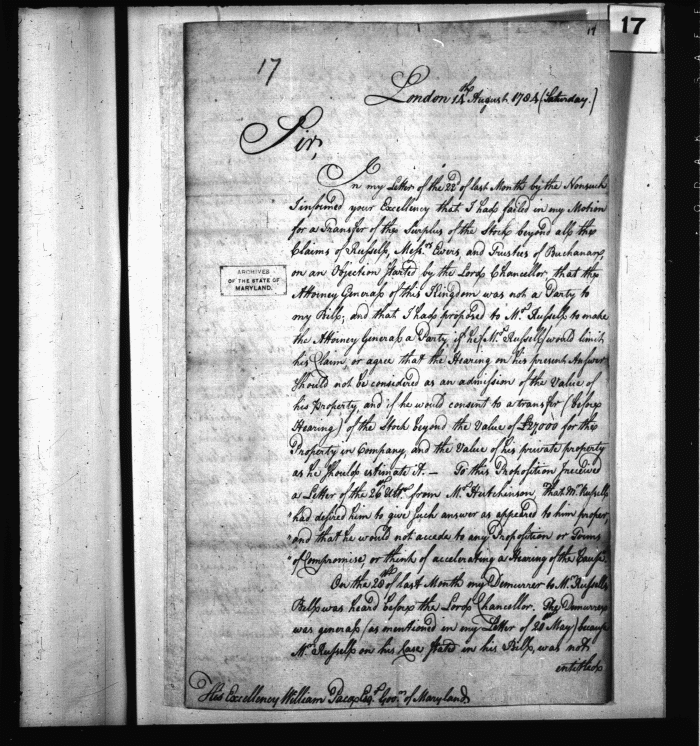 17
17
17
London 14th August 1784 (Saturday.)
Sir,
In my Letter of the 22d of last Month by the Nonsuch
I informed your Excellency that I had failed in my Motion
for a Transfer of the Surplus of the Stock beyond all the
Claims of Russell, Messrs Ewers and Trustees of Buchanan,
on an Objection started by the Lord Chancellor that the
Attorney General of this Kingdom was not a Party to
my Bill; and that I had proposed to Mr Russell to make
the Attorney General a Party, if he (Mr Russell) would limit
his Claim, or agree that the Hearing on his present Answer
should not be considered as an admission of the Value of
his Property, and if he would consent to a transfer (before
Hearing) of the Stock beyond the Value of £27,000 for the
Property in Company, and the Value of his private property
as he should estimate it. — To this Proposition I received
a Letter of the 26th from Mr Hutchinson, that Mr Russell
"had desired him to give such answer as appeared to him proper
"and that he would not accede to any Proposition or Terms
"of Compromise or think of accelerating a Hearing of the Cause.
On the 28th of last Month my Demurrer to Mr Russell's
Bill was heard before the Lord Chancellor. The Demurrer
was general (as mentioned in my Letter of 28th May) because
Mr Russell on his Case stated in his Bill, was not
entitled
His Excellency William Paca Esqr Govr of Maryland
ARCHIVES
OF THE STATE OF
MARYLAND.